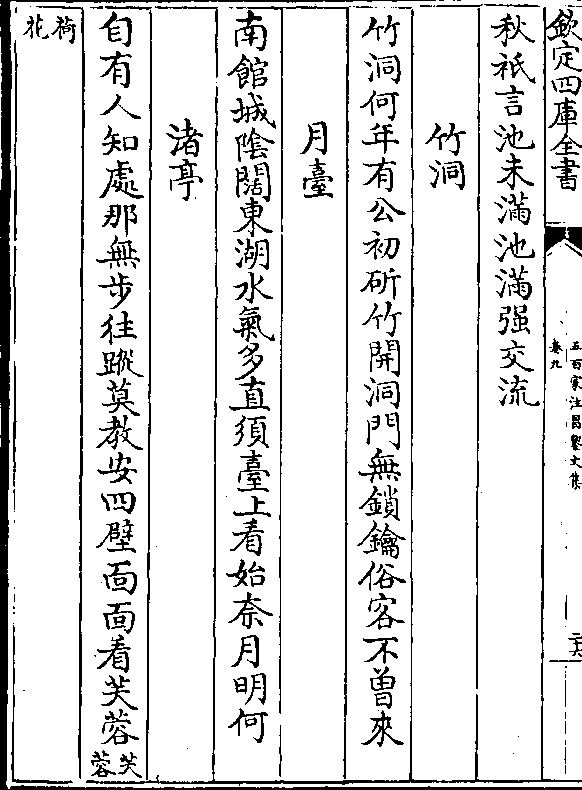 欽定四庫全書
五百家注昌黎文集
卷九
二十六
秋祇言池未滿池滿强交流
竹洞
竹洞何年有公初斫竹開洞門無鎖鑰俗客不曽來
月臺
南館城陰闊東湖水氣多直須臺上看始奈月明何
渚亭
自有人知處那無步往蹤莫教安四壁面面看芙蓉芙蓉
荷花